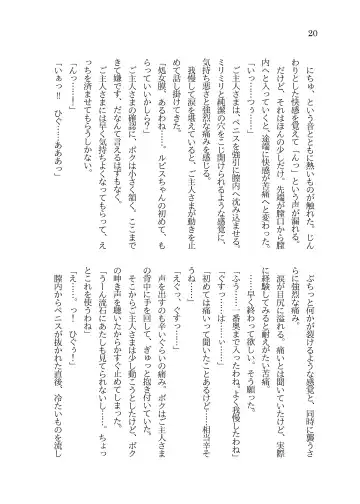 20
にちゅ、という音とともに熱いものが触れた。じん
わりとした快感を覚えて「んっ」という声が漏れる。
だけど、それはほんの少しだけ。先端が膣口から膣
内へと入っていくと、途端に快感が苦痛へと変わった。
「いっ……つぅ……っ」
ご主人さまは、ペニスを強引に膣内へ沈み込ませる。
ミリミリと純潔の穴をこじ開けられるような感覚に、
気持ち悪さと強烈な痛みを感じる。
我慢して涙を堪えていると、ご主人さまが動きを止
めて話し掛けてきた。
「処女膜、あるわね……。ルビスちゃんの初めて、も
らっていいかしら？」
ご主人さまの確認に、ボクは小さく頷く。ここまで
きて嫌です、だなんて言えるはずもなく。
ご主人さまに早く気持ちよくなってもらって、え
っちを済ませてもらうしかない。
「んっ………！」
「いぁっ!!　ひぐ……あああっ」
ぷちっと何かが裂けるような感覚と、同時に襲うさ
らに強烈な痛み。
涙が目尻に溢れる。痛いとは聞いていたけど、実際
に経験してみると耐えがたい苦痛。
……早く終わって欲しい。そう願った。
「ふぅ……。一番奥まで入ったわね。よく我慢したわね」
「ぐすっ……は……ぃ……」
「初めては痛いって聞いたことあるけど……相当辛そ
うね……」
「えぐっ、ぐすっ……」
ボクの声も辛いぐらいの痛み。ボクはご主人さま
の背中に手を回して、ぎゅっと抱き付いていた。
そこからご主人さまは少し動こうとしたけど、ボク
の呻き声を聴いたからかすぐ止めてしまった。
「うーん流石にあたしも見てられないし……、ちょっ
とこれを使うわね」
「え……っ。ひぐぅ！」
膣内からペニスが抜かれた直後、冷たいものを流し